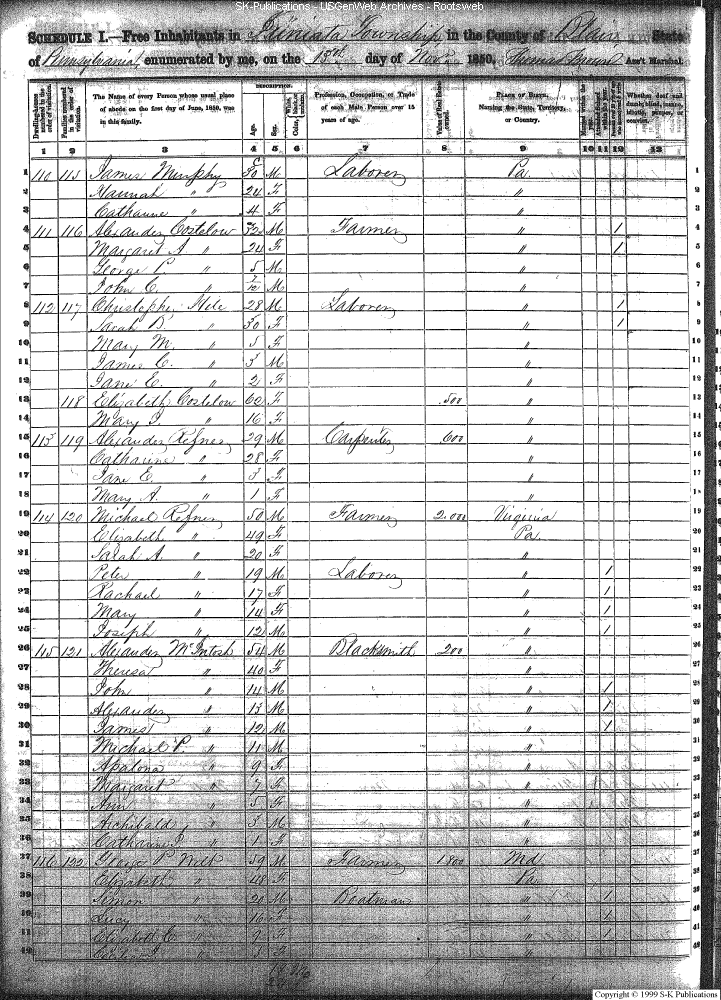 SK-Publications - USGenWeb Archives - Rootsweb
SCHEDULE I.—Free Inhabitants in Juniata Township in the County of Blair State
of Pennsylvania enumerated by me, on the 13th day of Nov 1850. Thomas Ass't Marshal.
DESCRIPTION.
Dwelling-houses numbered in the order of visitation. Families numbered in the order of visitation. The Name of every Person whose usual place of abode on the first day of June, 1850, was in this family. Age. Sex. Profession, Occupation, or Trade of each Male Person over 15 years of age. Value of Real Estate owned. Place of Birth, Naming the State, Territory, or Country. Married within the year. Whether deaf and dumb, blind, insane, idiotic, pauper, or convict.
1 2 3 4 5 6 7 8 9 10 11 12 13
1 110 115 James Murphy 30 M Laborer Pa 1
2 Hannah " 24 F " 2
3 Catharine " 4 F " 3
4 111 116 Alexander Costelow 32 M Farmer " / 4
5 Margaret A " 24 F " / 5
6 George P. " 5 M " 6
7 John C. " 7/12 M " 7
8 112 117 Christopher Hile 28 M Laborer " / 8
9 Sarah B. " 30 F " / 9
10 Mary M. " 5 F " 10
11 James C. " 3 M " 11
12 Jane E. " 2 F " 12
13 118 Elizabeth Costelow 60 F 500 " 13
14 Mary J. " 16 F " 14
15 113 119 Alexander Refner 29 M Carpenter 600 " 15
16 Catharine " 28 F " 16
17 Jane E. " 3 F " 17
18 Mary A. " 1 F " 18
19 114 120 Michael Refner 50 M Farmer 2.000 Virginia 19
20 Elizabeth " 49 F Pa. 20
21 Sarah A. " 20 F " 21
22 Peter " 19 M Laborer " / 22
23 Rachael " 17 F " / 23
24 Mary " 14 F " / 24
25 Joseph " 12 M " / 25
26 115 121 Alexander McIntosh 54 M Blacksmith 200 " 26
27 Theresa " 40 F " 27
28 John " 14 M " / 28
29 Alexander " 13 M " / 29
30 James " 12 M " / 30
31 Michael P. " 11 M " 31
32 Apalona " 9 F " 32
33 Margaret " 7 F " 33
34 Ann " 5 F " 34
35 Archibald " 3 M " 35
36 Catharine " 1 F " 36
37 116 122 George P. Wilt 59 M Farmer 1800 Md 37
38 Elizabeth " 48 F Pa 38
39 Simon " 20 M Boatman " / 39
40 Lucy " 16 F " / 40
41 Elizabeth C. " 9 F " / 41
42 " 3 F " 42
Copyright © 1999 S-K Publications